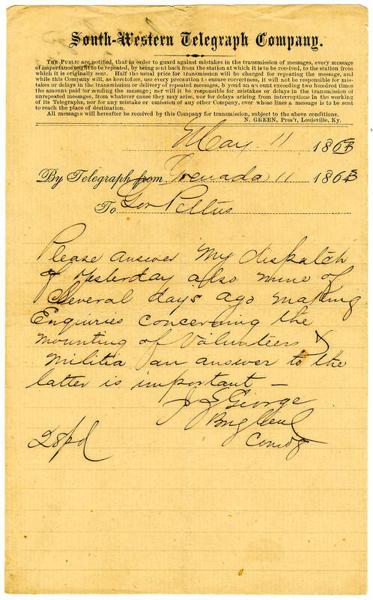 South-Western Telegraph Company.
THE PUBLIC are notified, that in order to guard against mistakes in the transmission of messages, every message
of importance ought to be repeated, by being sent back from the station at which it is to be received, to the station from
which it is originally sent. Half the usual price for transmission will be charged for repeating the message, and
while this Company will, as heretofore, use every precaution to ensure correctness, it will not be responsible for mis-
takes or delays in the transmission or delivery of repeated messages, beyond an amount exceeding two hundred times
the amount paid for sending the message; nor will it be responsible for mistakes or delays in the transmission of
unrepeated messages, from whatever cause they may arise, nor for delays arising from interruptions in the working
of its Telegraphs, nor for any mistake or omission of any other Company, over whose lines a message is to be sent
to reach the place of destination.
All messages will hereafter be received by this Company for transmission, subject to the above conditions.
N. GREEN, Pres't, Louisville, Ky.
May 11 1863
By Telegraph from Grenada 11 1863
To Gov Pettus
Please answer my dispatch
of yesterday also mine of
several days ago making
Enquiries concerning the
mounting of Volunteers &
Militia an answer to the
latter is important —
J Z George
Brig Genl
Comdg
28 pd